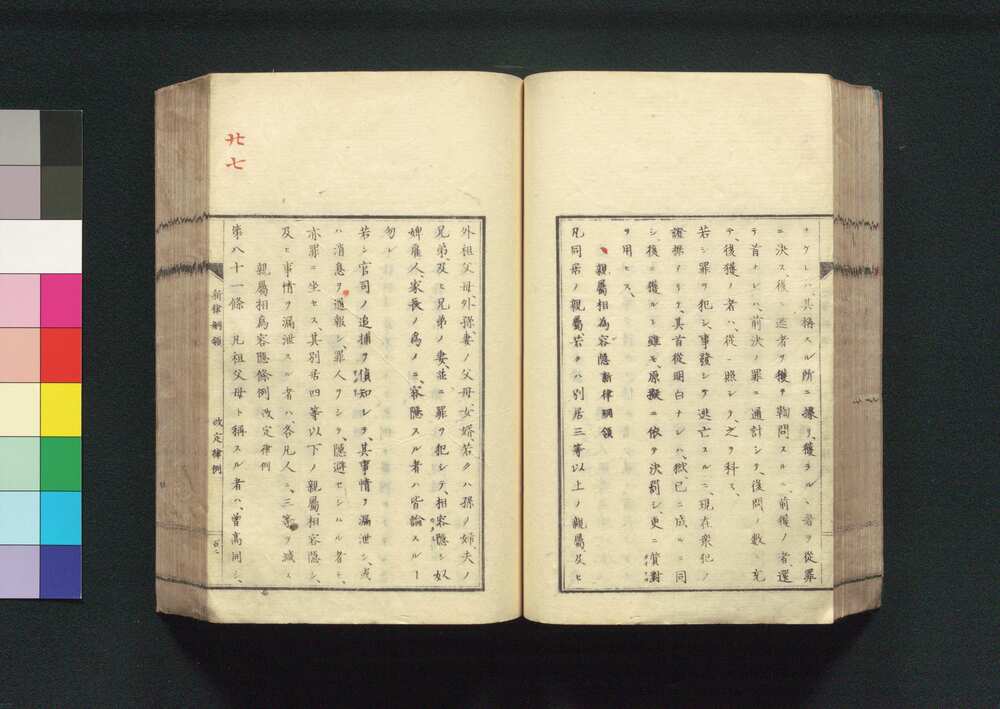 ナケレハ、其指スル所ニ據リ、獲ラル、者ヲ從罪
ニ決ス、後ニ逃者ヲ獲テ鞫問スルニ、前獲ノ者、還
テ首ナレハ、前決ノ罪ニ通計シテ、後問ノ數ニ充
テ、後獲ノ者ハ、從ニ照シテ之ヲ科ス、
若シ罪ヲ犯シ、事發シテ逃亡スルニ、現在衆犯ノ
證據アリテ、其首從明白ナレハ、獄已ニ成ルニ同
シ、後ニ獲ルト雖モ、原擬ニ依テ決罰シ、更ニ質對
ヲ用ヒス、
親屬相為容隱 新律綱領
凡同居ノ親屬、若クハ別居三等以上ノ親屬、及ヒ
外祖父母、外孫、妻ノ父母、女婿、若クハ孫ノ婦、夫ノ
兄弟、及ヒ兄弟ノ妻、並ニ罪ヲ犯シテ、相容隱シ、奴
婢雇人、家長ノ爲メニ、容隱スル者ハ、皆論スルー
勿レ、
若シ官司ノ追捕ヲ偵知シテ、其事情ヲ漏泄シ、或
ハ消息ヲ通報シ、罪人ヲシテ、隱避セシムル者モ、
亦罪ニ坐セス、其別居四等以下ノ親屬、相容隱シ、
及ヒ事情ヲ漏泄スル者ハ、各凡人ニ、三等ヲ減ス、
親屬相爲容隱條例 改定律例
第八十一條 凡祖父母ト稱スル者ハ、曾高同シ、
新律綱領
改定律例
廿七